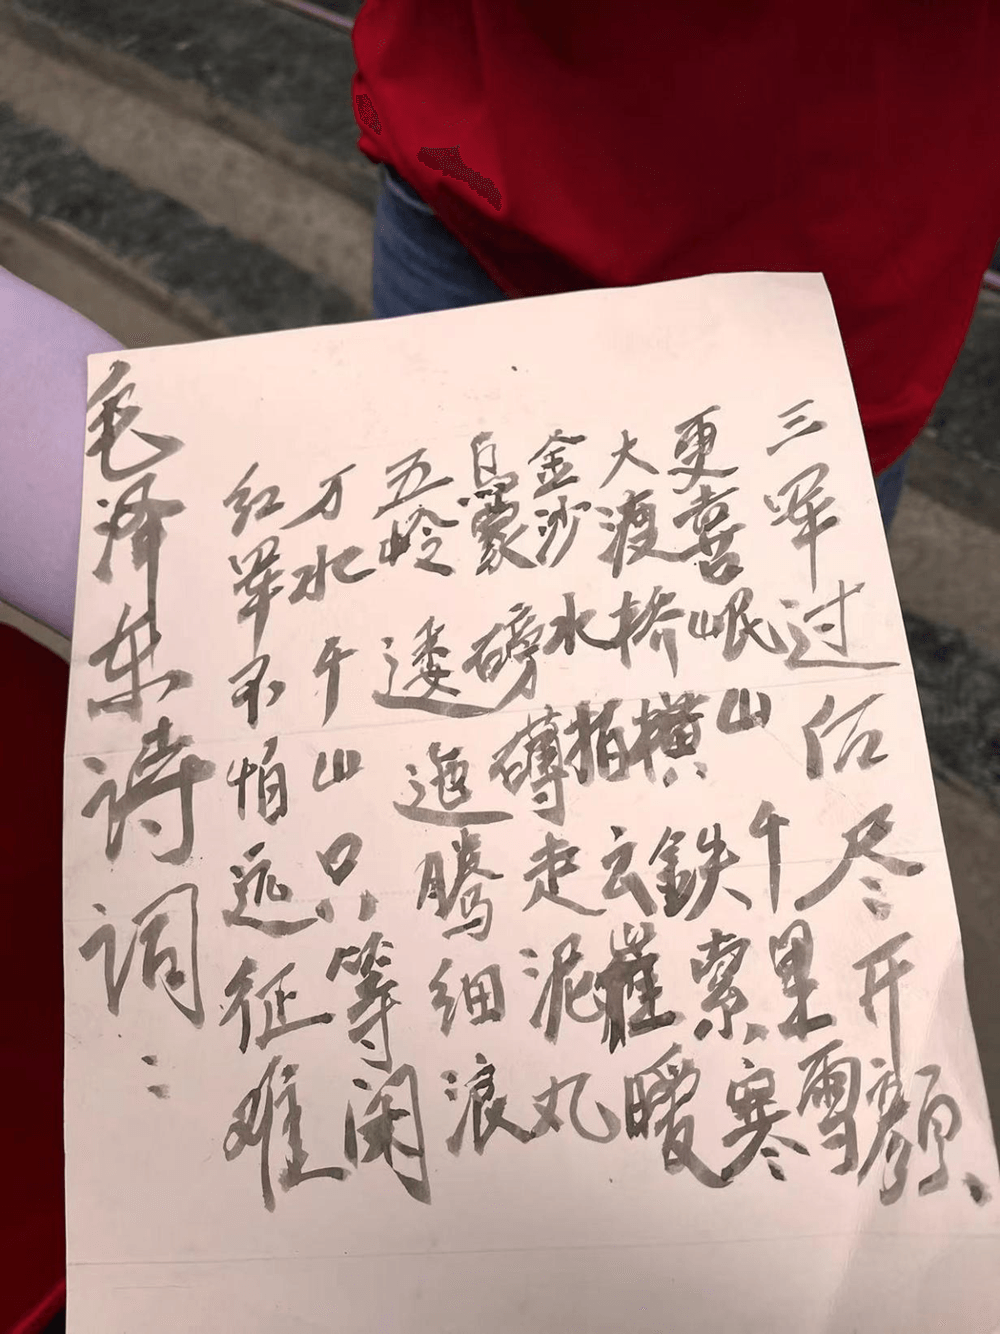 毛泽东诗词：
红军不怕远征难
万水千山只等闲
五岭逶迤腾细浪
烏蒙磅礴走泥丸
金沙水拍云崖暖
大渡桥横鉄索寒
更喜岷山千里雪
三军过后尽开颜、